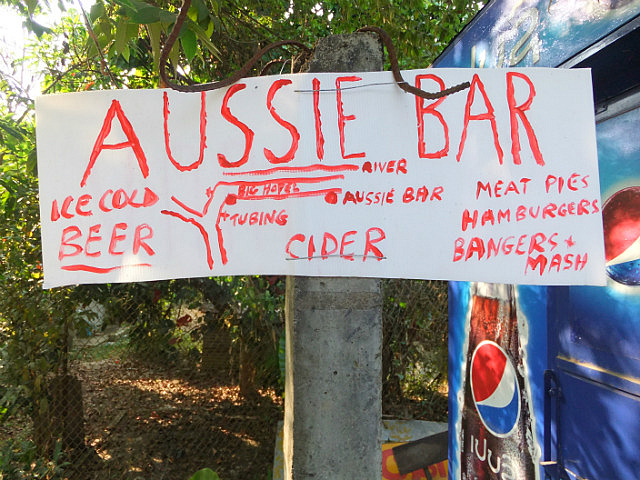 AUSSIE BAR
RIVER
BIG HOTEL
AUSSIE BAR
TUBING
ICE COLD
BEER
CIDER
MEAT PIES
HAMBURGERS
BANGERS +
MASH